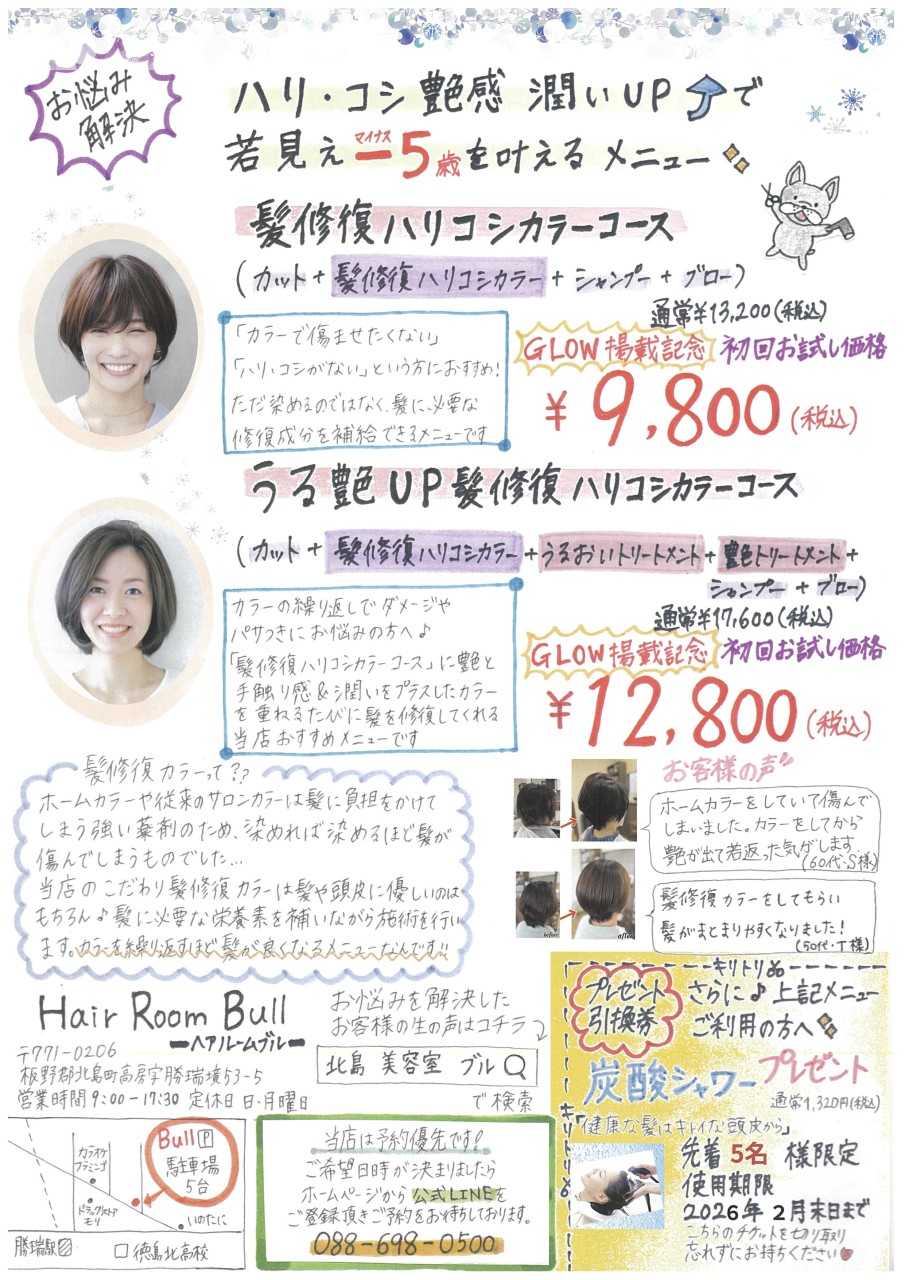 お悩み
解決
ハリ・コシ 艶感 潤いUP で
若見え マイナス -5歳を叶える メニュー
髪修復ハリコシカラーコース
(カット+髪修復ハリコシカラー+シャンプー+ブロー)
通常¥13,200(税込)
GLOW掲載記念 初回お試し価格
¥9,800(税込)
「カラーで傷ませたくない」
「ハリ・コシがない」という方におすすめ!
ただ染めるのではなく、髪に必要な
修復成分を補給できるメニューです
うる艶UP髪修復ハリコシカラーコース
(カット+髪修復ハリコシカラー+うるおいトリートメント+艶トリートメント+
シャンプー+ブロー)
通常¥17,600(税込)
GLOW掲載記念 初回お試し価格
¥12,800(税込)
カラーの繰り返しでダメージや
パサつきにお悩みの方へ♪
「髪修復ハリコシカラーコース」に艶と
手触り感&潤いをプラスしたカラー
を重ねるたびに髪を修復してくれる
当店おすすめメニューです
髪修復カラーって??
ホームカラーや従来のサロンカラーは髪に負担をかけて
しまう強い薬剤のため、染めれば染めるほど髪が
傷んでしまうものでした…
当店のこだわり髪修復カラーは髪や頭皮に優しいのは
もちろん♪髪に必要な栄養素を補いながら施術を行い
ます。カラーを繰り返すほど髪が良くなるメニューなんです!!
お客様の声
ホームカラーをしていて傷んで
しまいました。カラーをしてから
艶が出て若返った気がします。
(60代・S様)
髪修復カラーをしてもらい
髪がまとまりやすくなりました!
(50代・T様)
before
after
Hair Room Bull
ーヘアルームブルー
〒771-0206
板野郡北島町高房字勝瑞境53-5
営業時間9:00-17:30 定休日 日・月曜日
お悩みを解決した
お客様の生の声はコチラ
北島 美容室 ブル
で検索
カラオケ
フラミンゴ
ドラッグストア
モリ
Bull P
駐車場
5台
いのたに
勝瑞駅
徳島北高校
当店は予約優先です!
ご希望日時が決まりましたら
ホームページから公式LINEを
ご登録頂きご予約をお待ちしております。
088-698-0500
キリトリ
プレゼント
引換券
さらに♪上記メニュー
ご利用の方へ
炭酸シャワープレゼント
通常1,320円(税込)
「健康な髪はキレイな頭皮から」
キリトリ
先着 5名 様限定
使用期限
2026年 2月末日まで
こちらのチケットを切り取り
忘れずにお持ちください